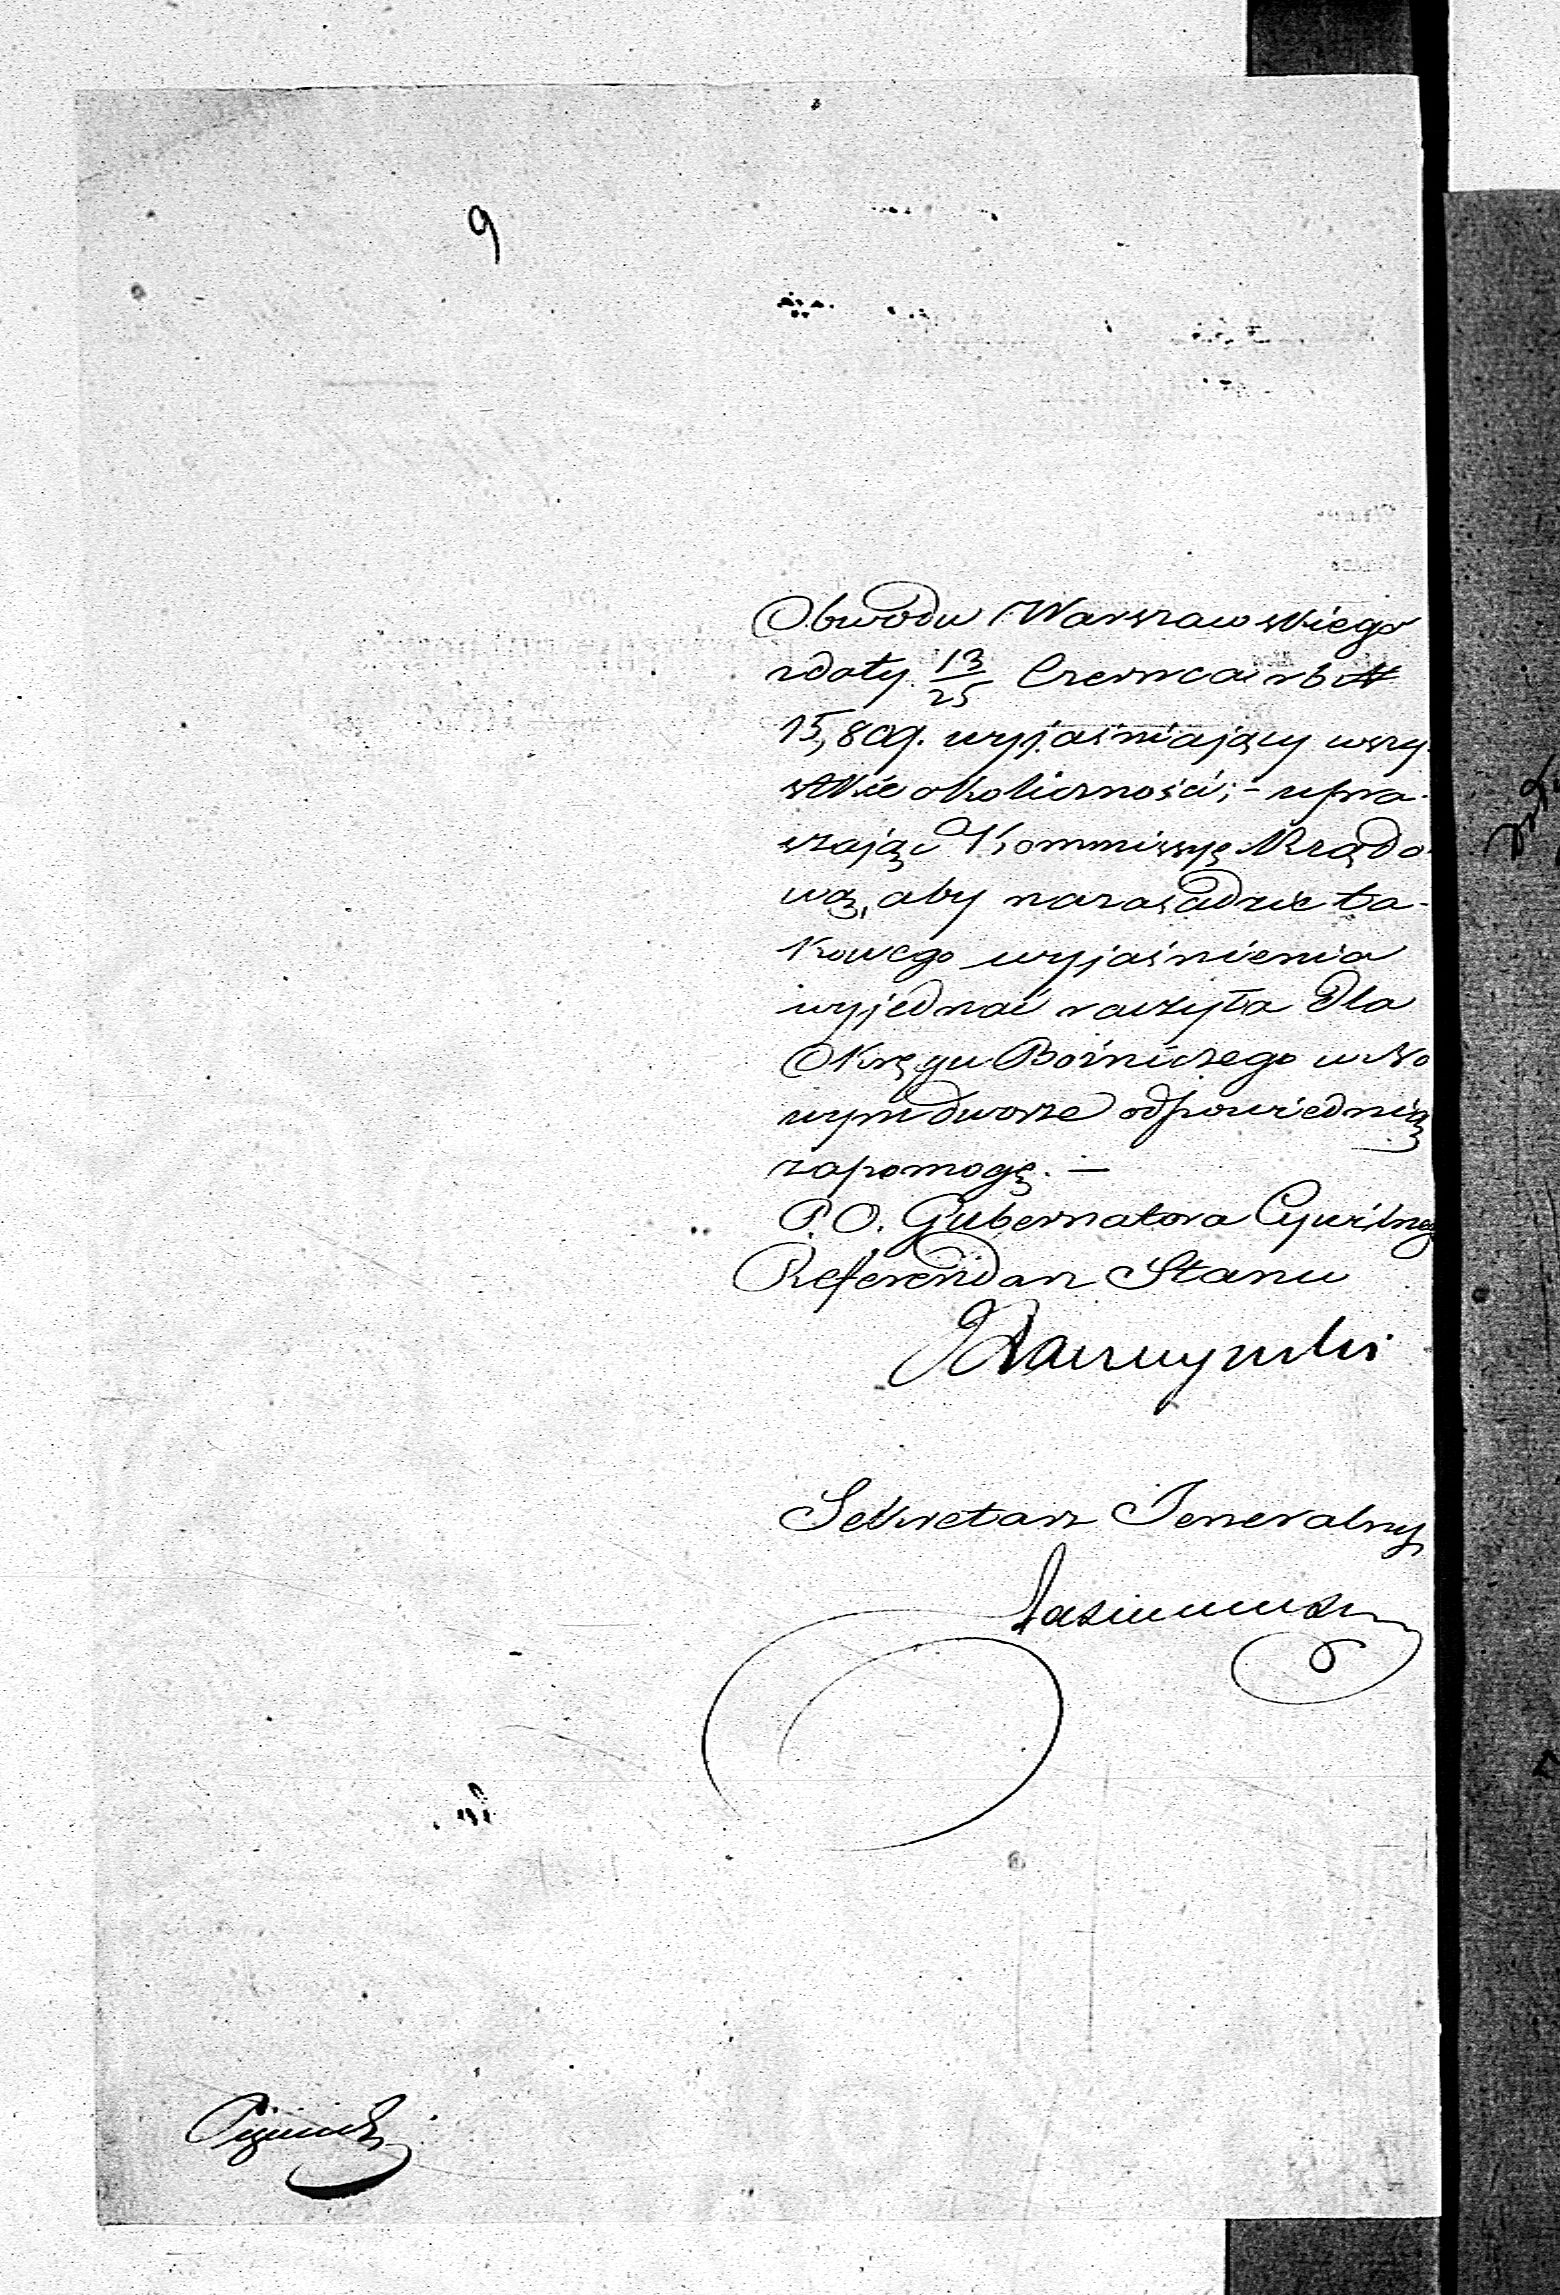 9
Obwodu Warszawskiego
z daty 13/25 Czerwca r b N
15,809. wyjaśniający wszy-
stkie okoliczności; - upra-
szając Kommissyę Rządo-
wą, aby na zasadzie ta-
kowego wyjaśnienia
wyjednać raczyła dla
Okręgu Bożniczego w No
wym dworze odpowiednią
zapomogę. —
P. O. Gubernatora Cywilneg
Referendarz Stanu
Sekretarz Jeneralny